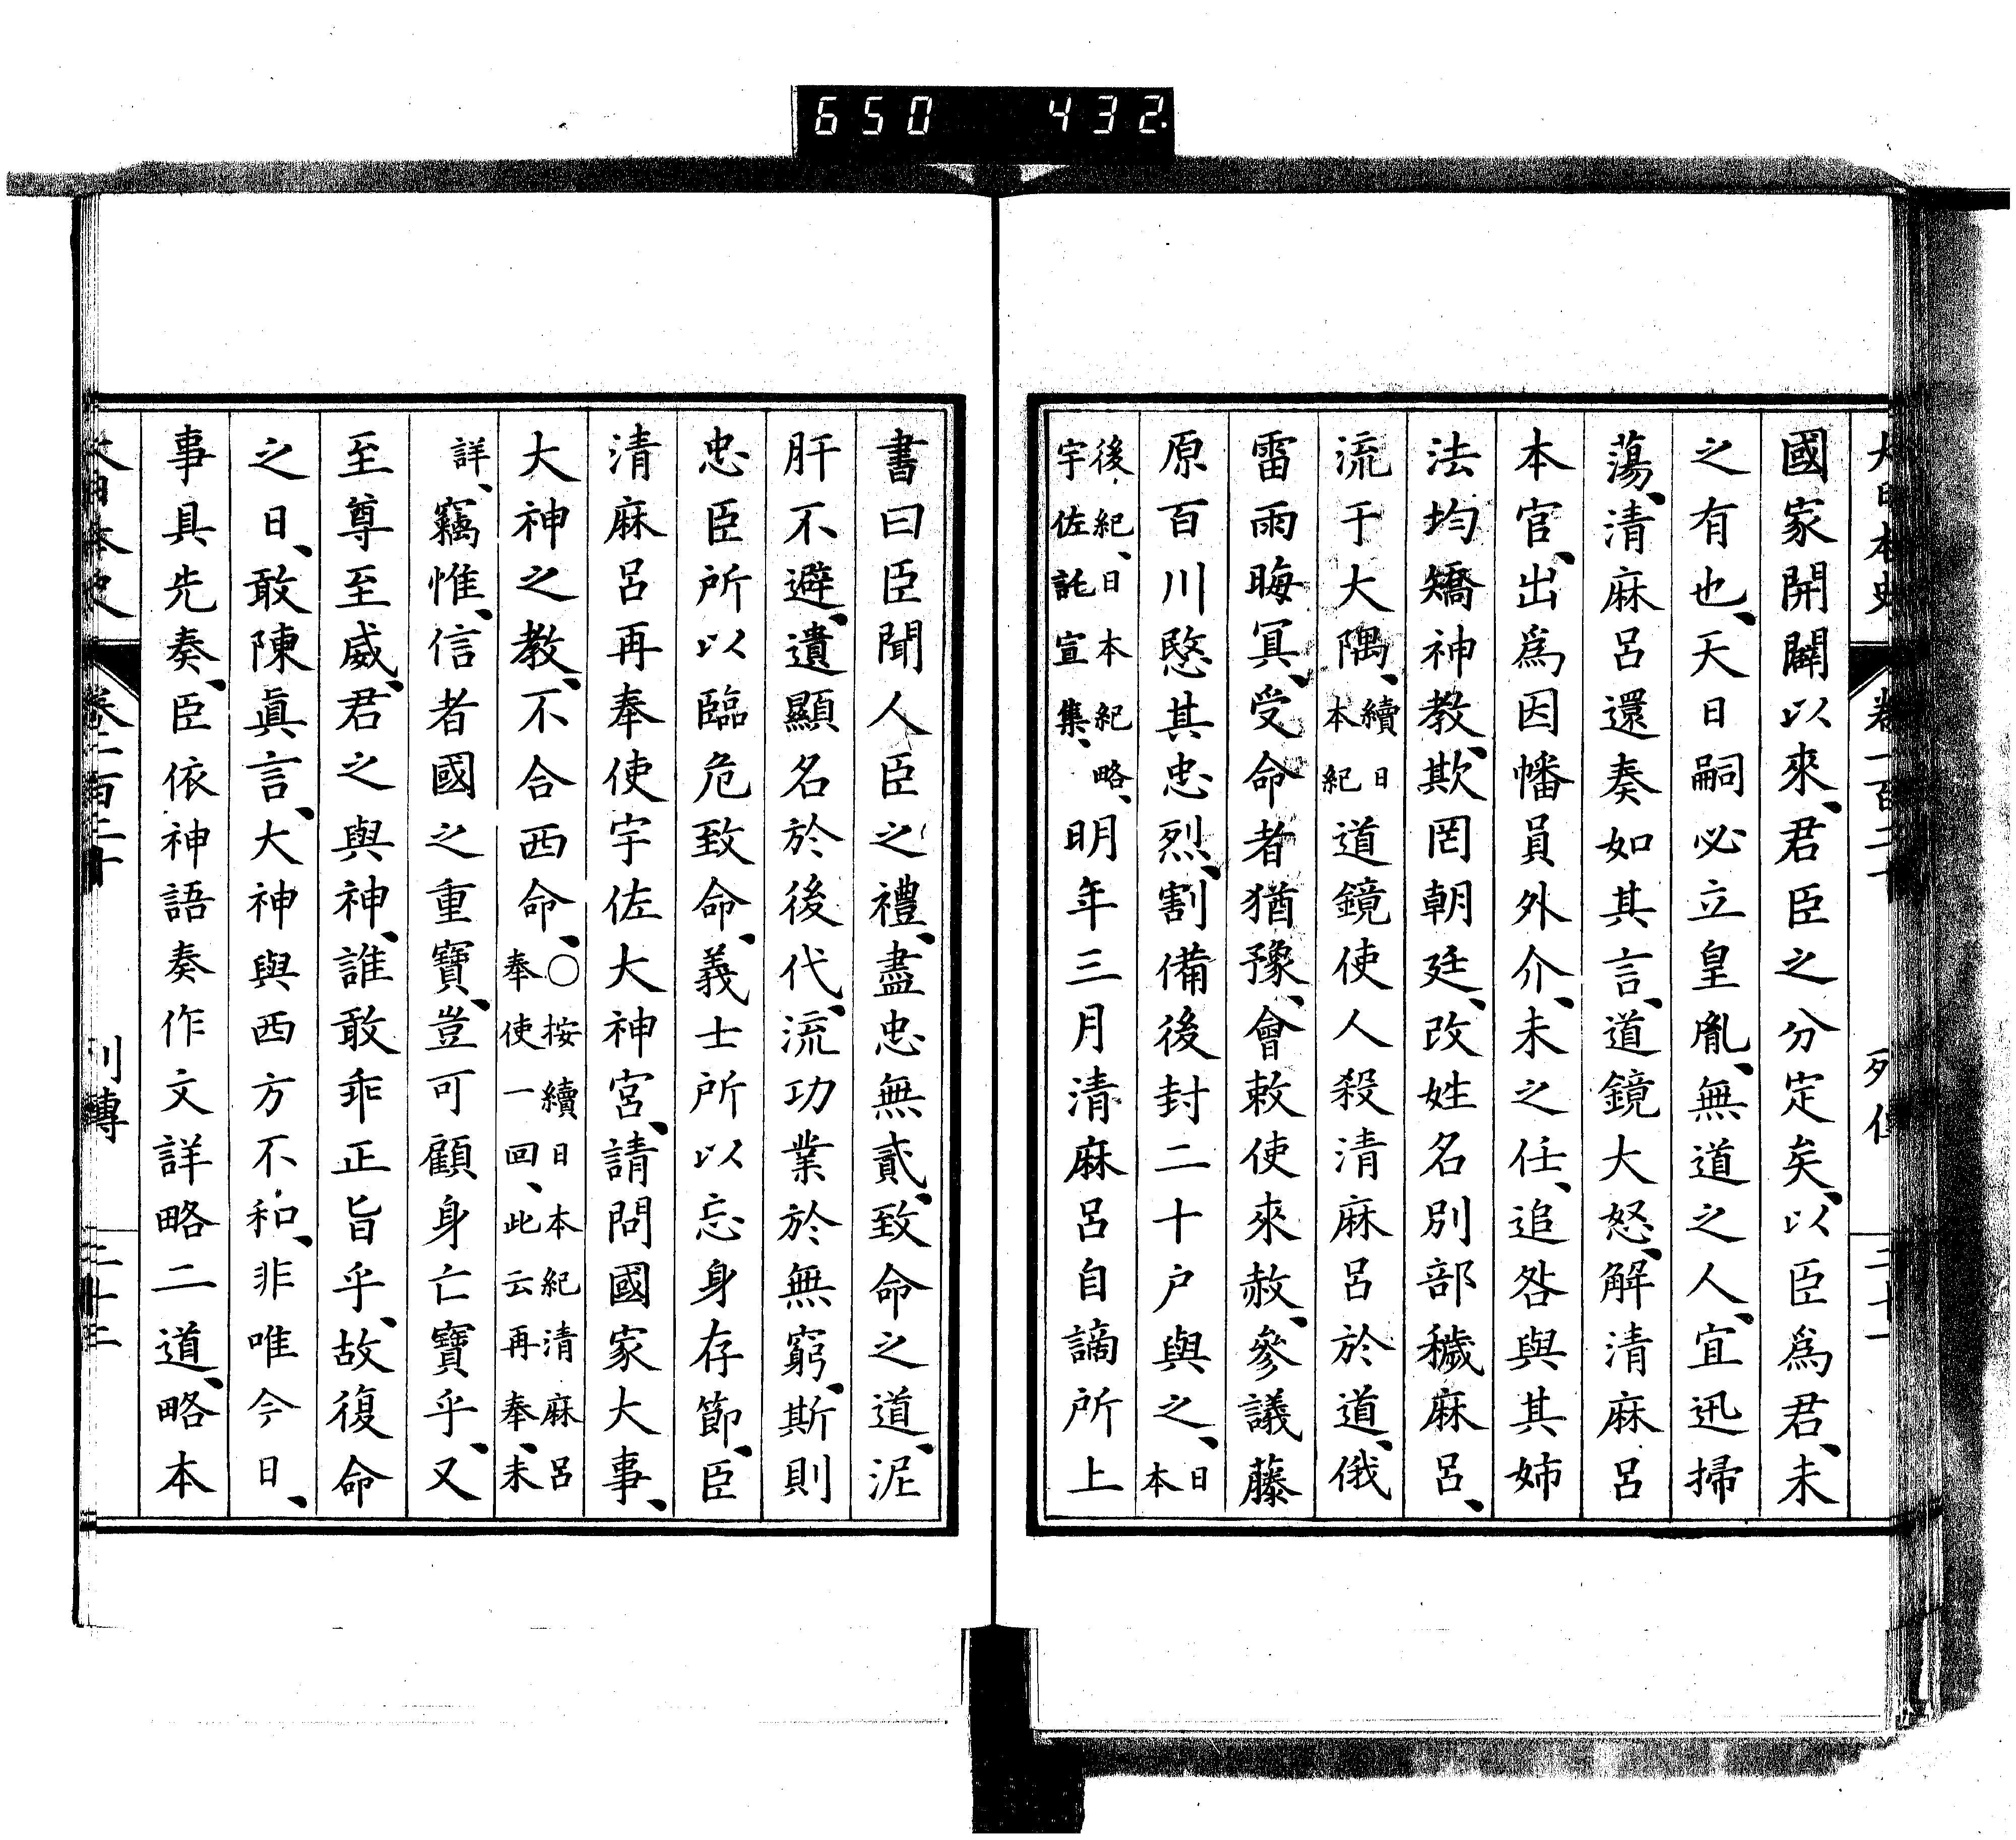 650 432
大日本史 卷一百二十 列傳 二十一
國家開闢以來、君臣之分定矣、以臣爲君、未
之有也、天日嗣必立皇胤、無道之人、宜迅掃
蕩、清麻呂還奏如其言、道鏡大怒、解清麻呂
本官、出爲因幡員外介、未之任、追咎與其姉
法均矯神教、欺罔朝廷、改姓名別部穢麻呂、
流于大隅、續日本紀道鏡使人殺清麻呂於道、俄
雷雨晦冥、受命者猶豫、會敕使來赦、參議藤
原百川愍其忠烈、割備後封二十戶與之、日本
後紀、日本紀略、宇佐託宣集、明年三月清麻呂自謫所上
書曰臣聞人臣之禮、盡忠無貳、致命之道、泥
肝不避、遺顯名於後代、流功業於無窮、斯則
忠臣所以臨危致命、義士所以忘身存節、臣
清麻呂再奉使宇佐大神宮、請問國家大事、
大神之教、不合西命、○按續日本紀清麻呂奉使一回、此云再奉、未
詳、竊惟、信者國之重寶、豈可顧身亡寶乎、又
至尊至威、君之與神、誰敢乖正旨乎、故復命
之日、敢陳眞言、大神與西方不和、非唯今日、
事具先奏、臣依神語奏作文詳略二道、略本
大日本史 卷一百二十 列傳 二十二